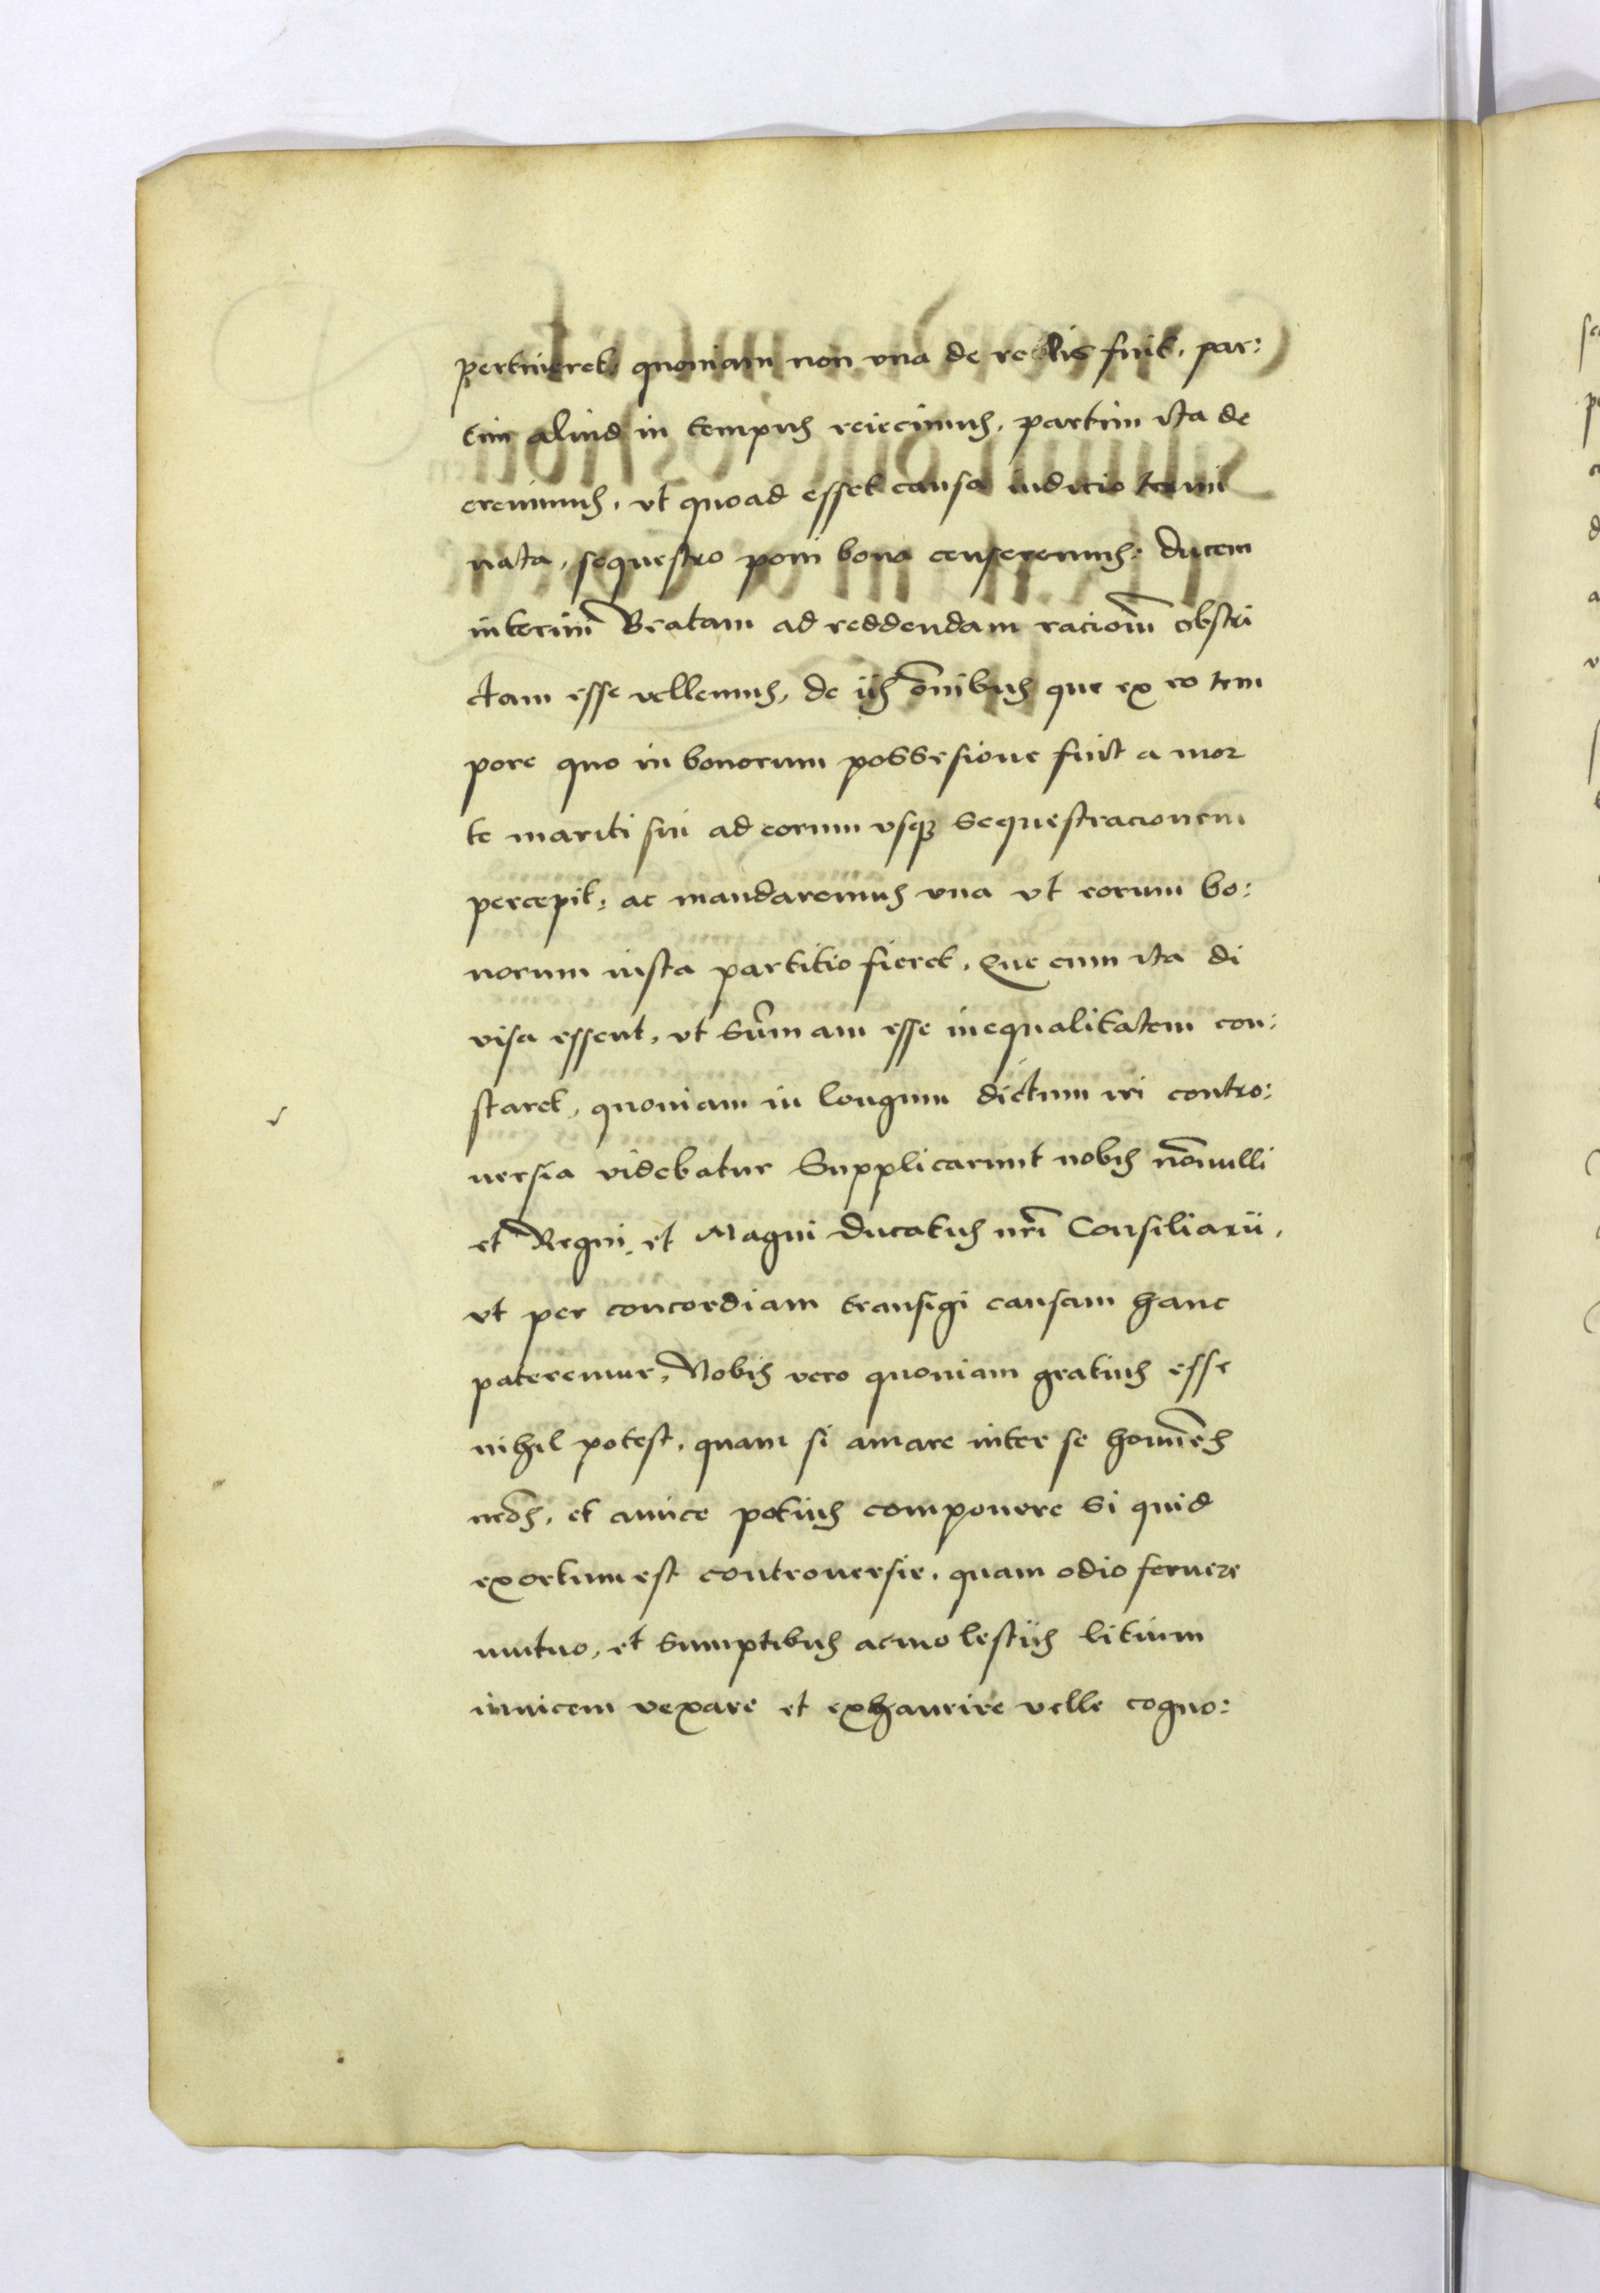 pertineret, quoniam non vna de re lis fuit, par:
tim aliud in tempus reiecimus, partim ita de
creuimus, vt quoad esset causa iudicio termi
nata, sequestro poni bona censeremus: Ducem
interim̄ Beatam ad reddendam racioē̄m obstri
ctam esse vellemus, de iis om̄ibus que ex eo tem
pore quo in bonorum possesione fuit a mor
te mariti sui ad eorum vsqꝫ sequestracionem
percepit, ac mandaremus vna vt eorum bo:
norum iusta partitio fieret. Que cum ita di
visa essent, vt sūmam esse inequalitatem con:
staret, quoniam in longum dictum iri contro:
uersia videbatur Supplicarunt nobis nōnulli
et Regni et Magni Ducatus nr̄i Consiliarii,
vt per concordiam transigi causam hanc
pateremur, Nobis vero quoniam gratius esse
nihil potest, quam si amare inter se homīes
nr̄os, et amice potius componere si quid
exortum est controuersie, quam odio feruere
mutuo, et sumptibus ac molestiis litium
inuicem vexare et exhaurire velle cogno: